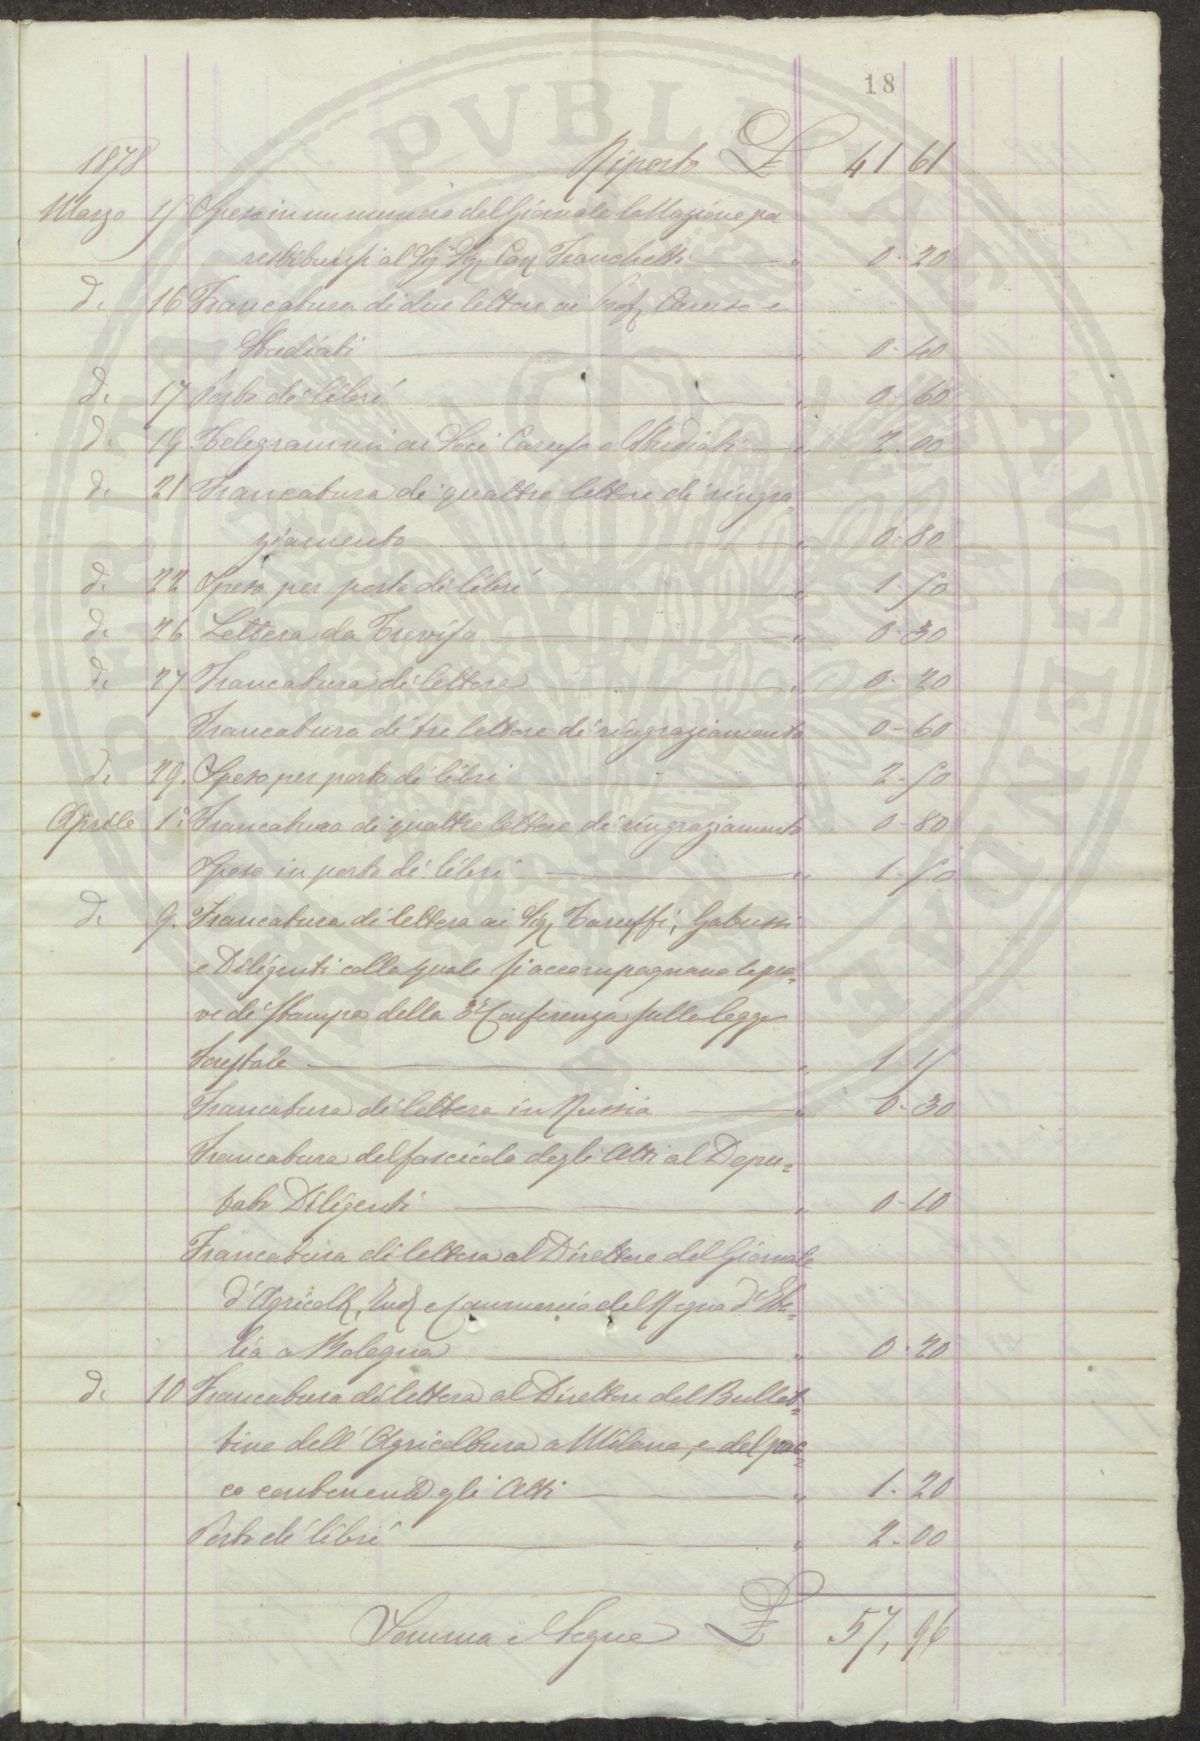 18
1878 Riporto £ 41 61
Marzo 15 Speso in un numero del Giornale la Nazione pa
restituirsi al Sig. Franchetti " 0-20
D. 16 Francatura di due lettere ai Prof. Caruso e
Studiati " 0-40
D. 17 Porto di libri " 0-60
D. 19 Telegrammi ai Soci Caruso e Studiati " 2.00
D. 21 Francatura di quattro lettere di ringra=
ziamento " 0-80
D. 22 Speso per porto di libri " 1-50
D. 26 Lettera da Treviso " 0-30
D. 27 Francatura di lettera " 0-20
Francatura di tre lettere di ringraziamento 0-60
D. 29. Speso per porto di libri " 2-50
Aprile 1° Francatura di quattro lettere di ringraziamento 0-80
Speso in porto di libri " 1-50
D. 9. Francatura di lettera ai Sigg. Taruffi, Gabussi
e Diligenti colla quale si accompagnano le pro=
ve di stampa della 3ª Conferenza sulla legge
Forestale " 1 15
Francatura di lettera in Russia " 0-30
Francatura del fascicolo degli Atti al Depu=
tato Diligenti " 0-10
Francatura di lettera al Direttore del Giornale
d'Agricolt. Ind. e Commercio del Regno d'Ita=
lia a Bologna " 0-20
D. 10 Francatura di lettera al Direttore del Bullet=
tino dell'Agricoltura a Milano, e del pac=
co contenente gli Atti " 1-20
Porto di libri " 2-00
Somma e Segue £ 57,96